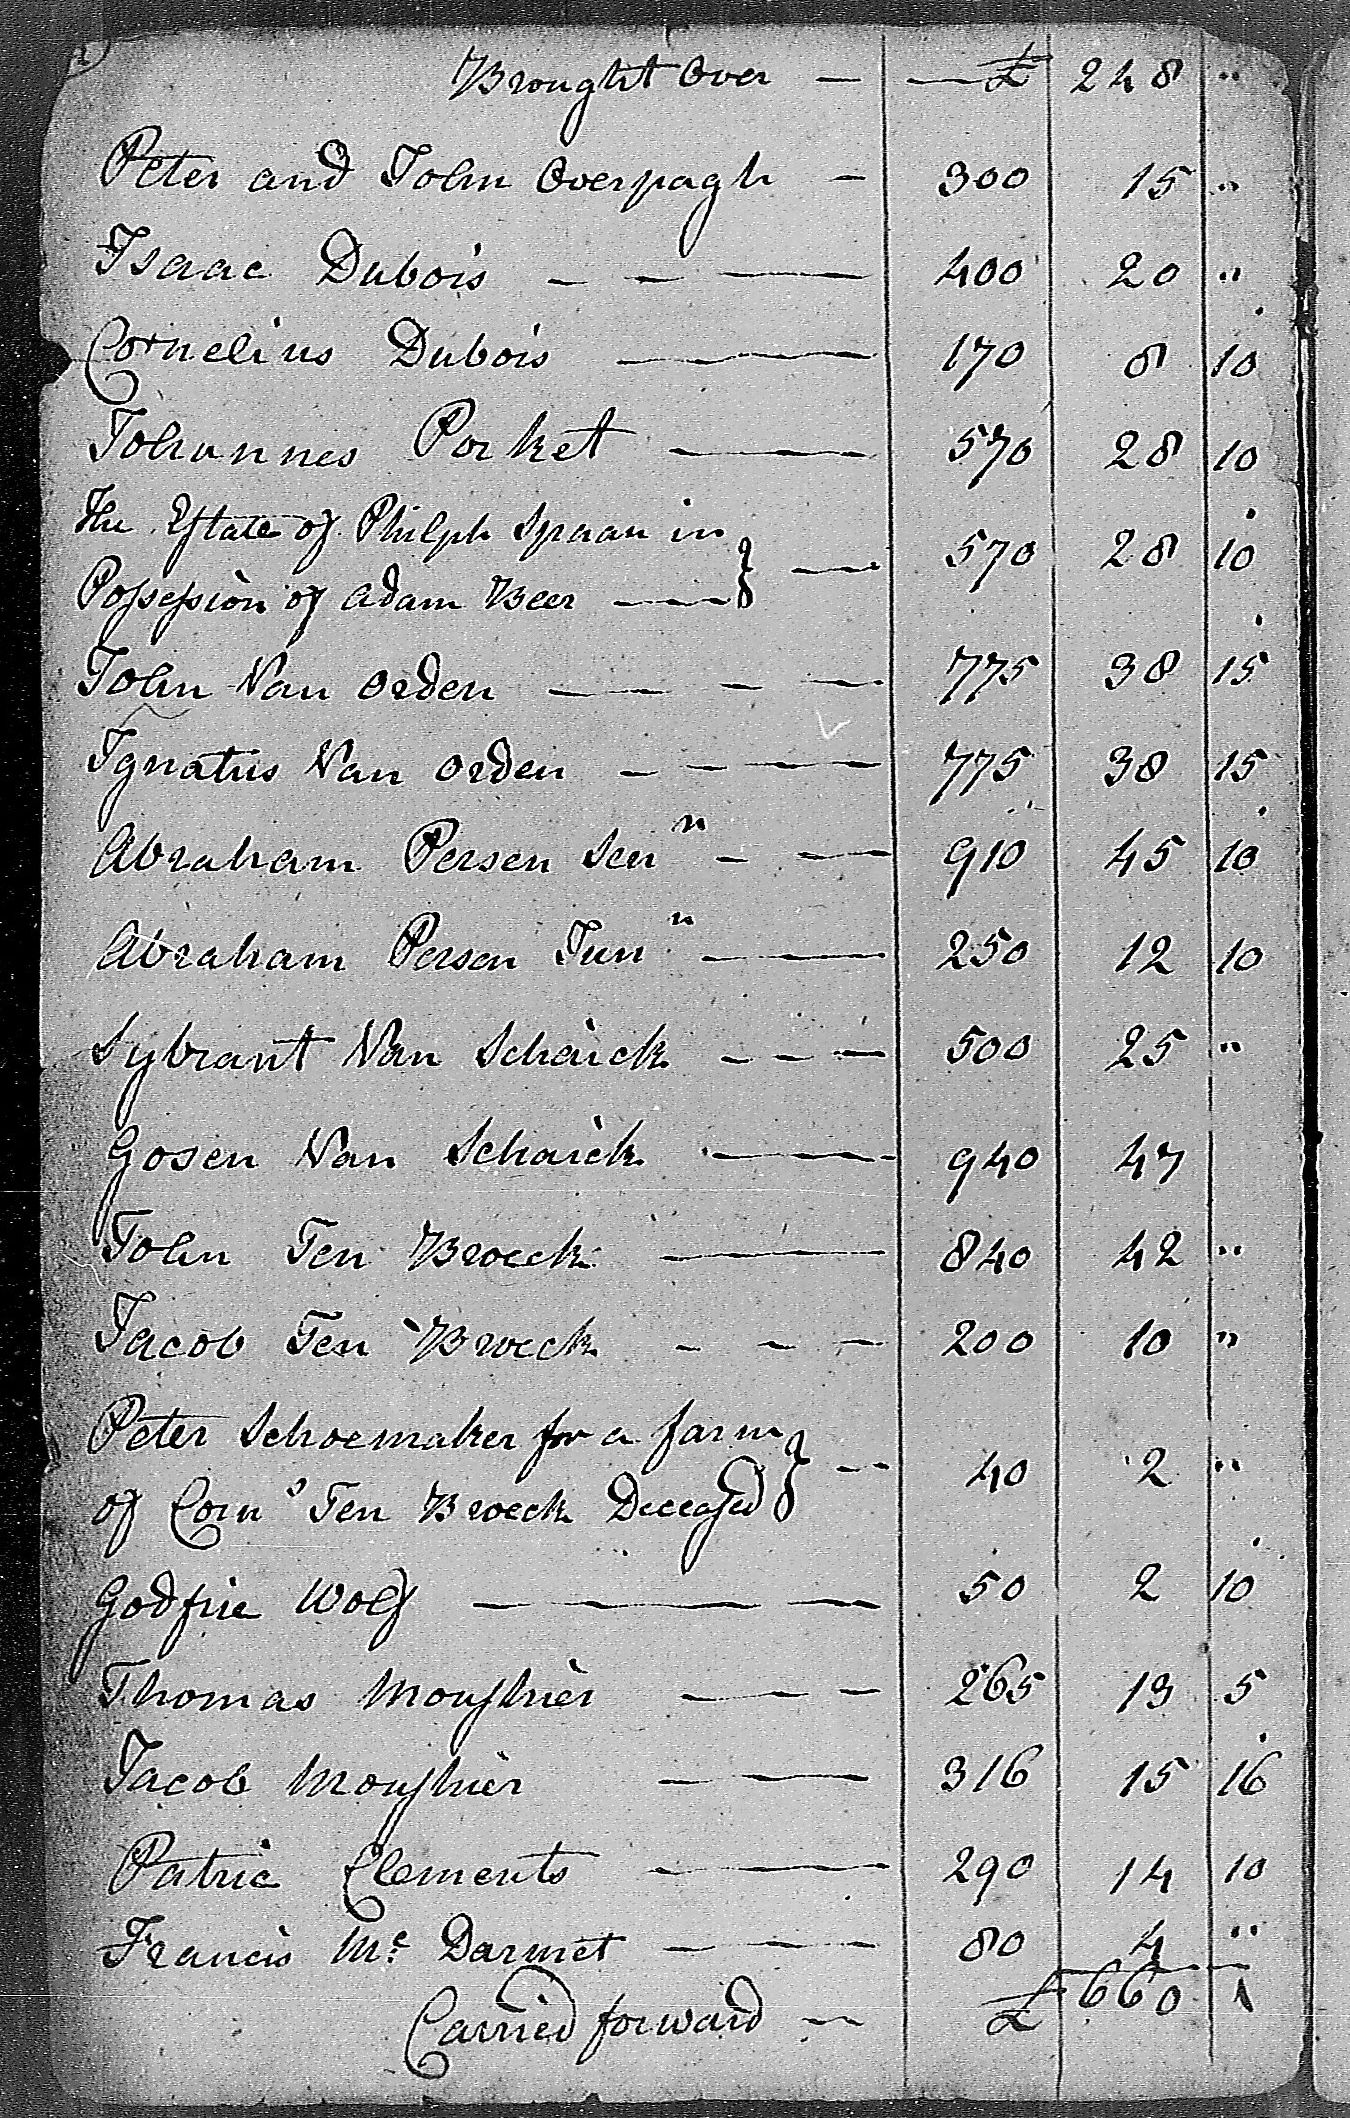 Brought Over — — £ 248 "
Peter and John Overpagh — 300 15 "
Isaac Dubois — — — 400 20 "
Cornelius Dubois — 170 8 10
Johannes Porket — 570 28 10
The Estate of Philph Spaan in
Possession of Adam Beer — } — 570 28 10
John Van Orden — — — 775 38 15
Ignatius Van Orden — — — 775 38 15
Abraham Persen Senr — — 910 45 10
Abraham Person Junr — 250 12 10
Sybrant Van Schaick — — — 500 25 "
Gosen Van Schaick — 940 47
John Ten Broeck — 840 42 "
Jacob Ten Broeck — — — 200 10 "
Peter Schoemaker for a farm
of Corns Ten Broeck Deceased } — 40 2 "
Godfrie Wolf — — — 50 2 10
Thomas — — — 265 13 5
Jacob — — 316 15 16
Patric Clements — — 290 14 10
Francis Mc Darmet — — 80 4 "
Carried forward — £ 660 1